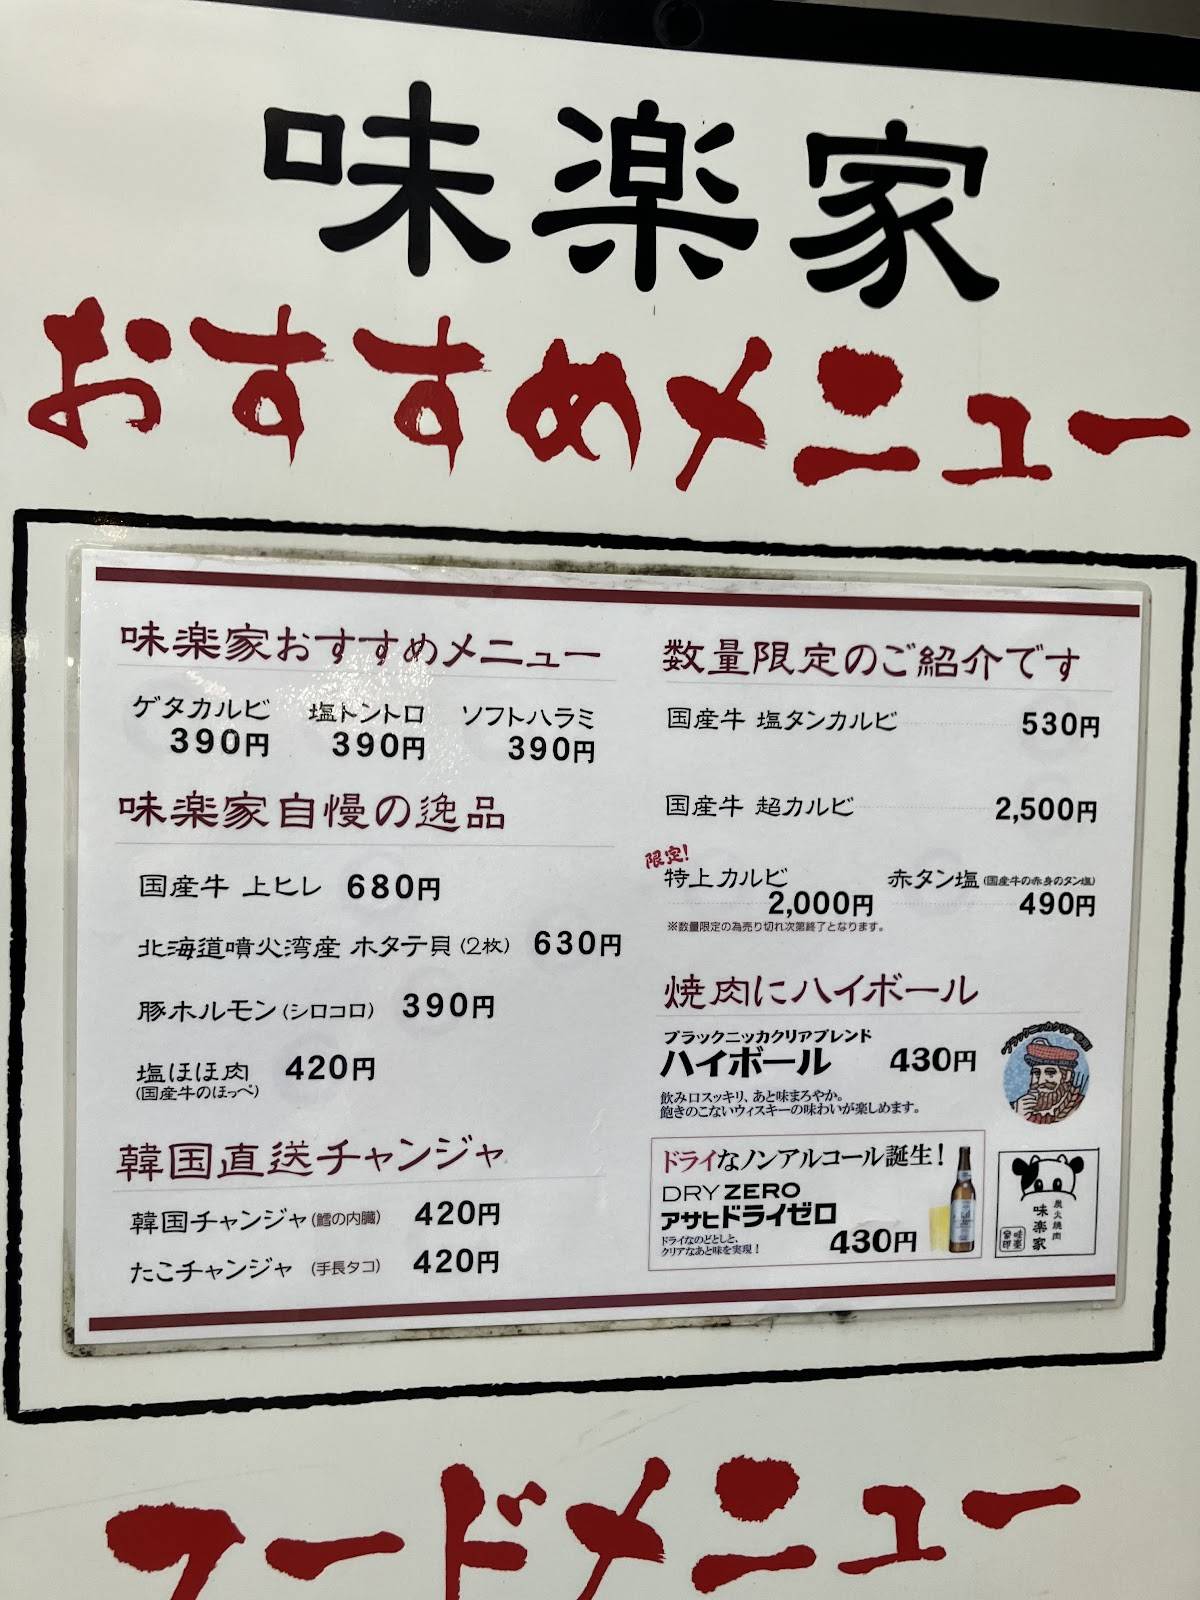 味楽家
おすすめメニュー
味楽家おすすめメニュー
ゲタカルビ 塩トントロ ソフトハラミ
390円 390円 390円
味楽家自慢の逸品
国産牛 上ヒレ 680円
北海道噴火湾産 ホタテ貝(2枚) 630円
豚ホルモン(シロコロ) 390円
塩ほほ肉 420円
(国産牛のほっぺ)
韓国直送チャンジャ
韓国チャンジャ(鱈の内臓) 420円
たこチャンジャ (手長タコ) 420円
数量限定のご紹介です
国産牛 塩タンカルビ 530円
国産牛 超カルビ 2,500円
限定!
特上カルビ 2,000円
赤タン塩(国産牛の赤身のタン塩) 490円
※数量限定の為売り切れ次第終了となります。
焼肉にハイボール
ブラックニッカクリアブレンド
ハイボール 430円
飲み口スッキリ、あと味まろやか。
飽きのこないウィスキーの味わいが楽しめます。
ドライなノンアルコール誕生!
DRY ZERO
アサヒドライゼロ
ドライなのどごしと、
クリアなあと味を実現! 430円
炭火焼肉
味楽家
フードメニュー